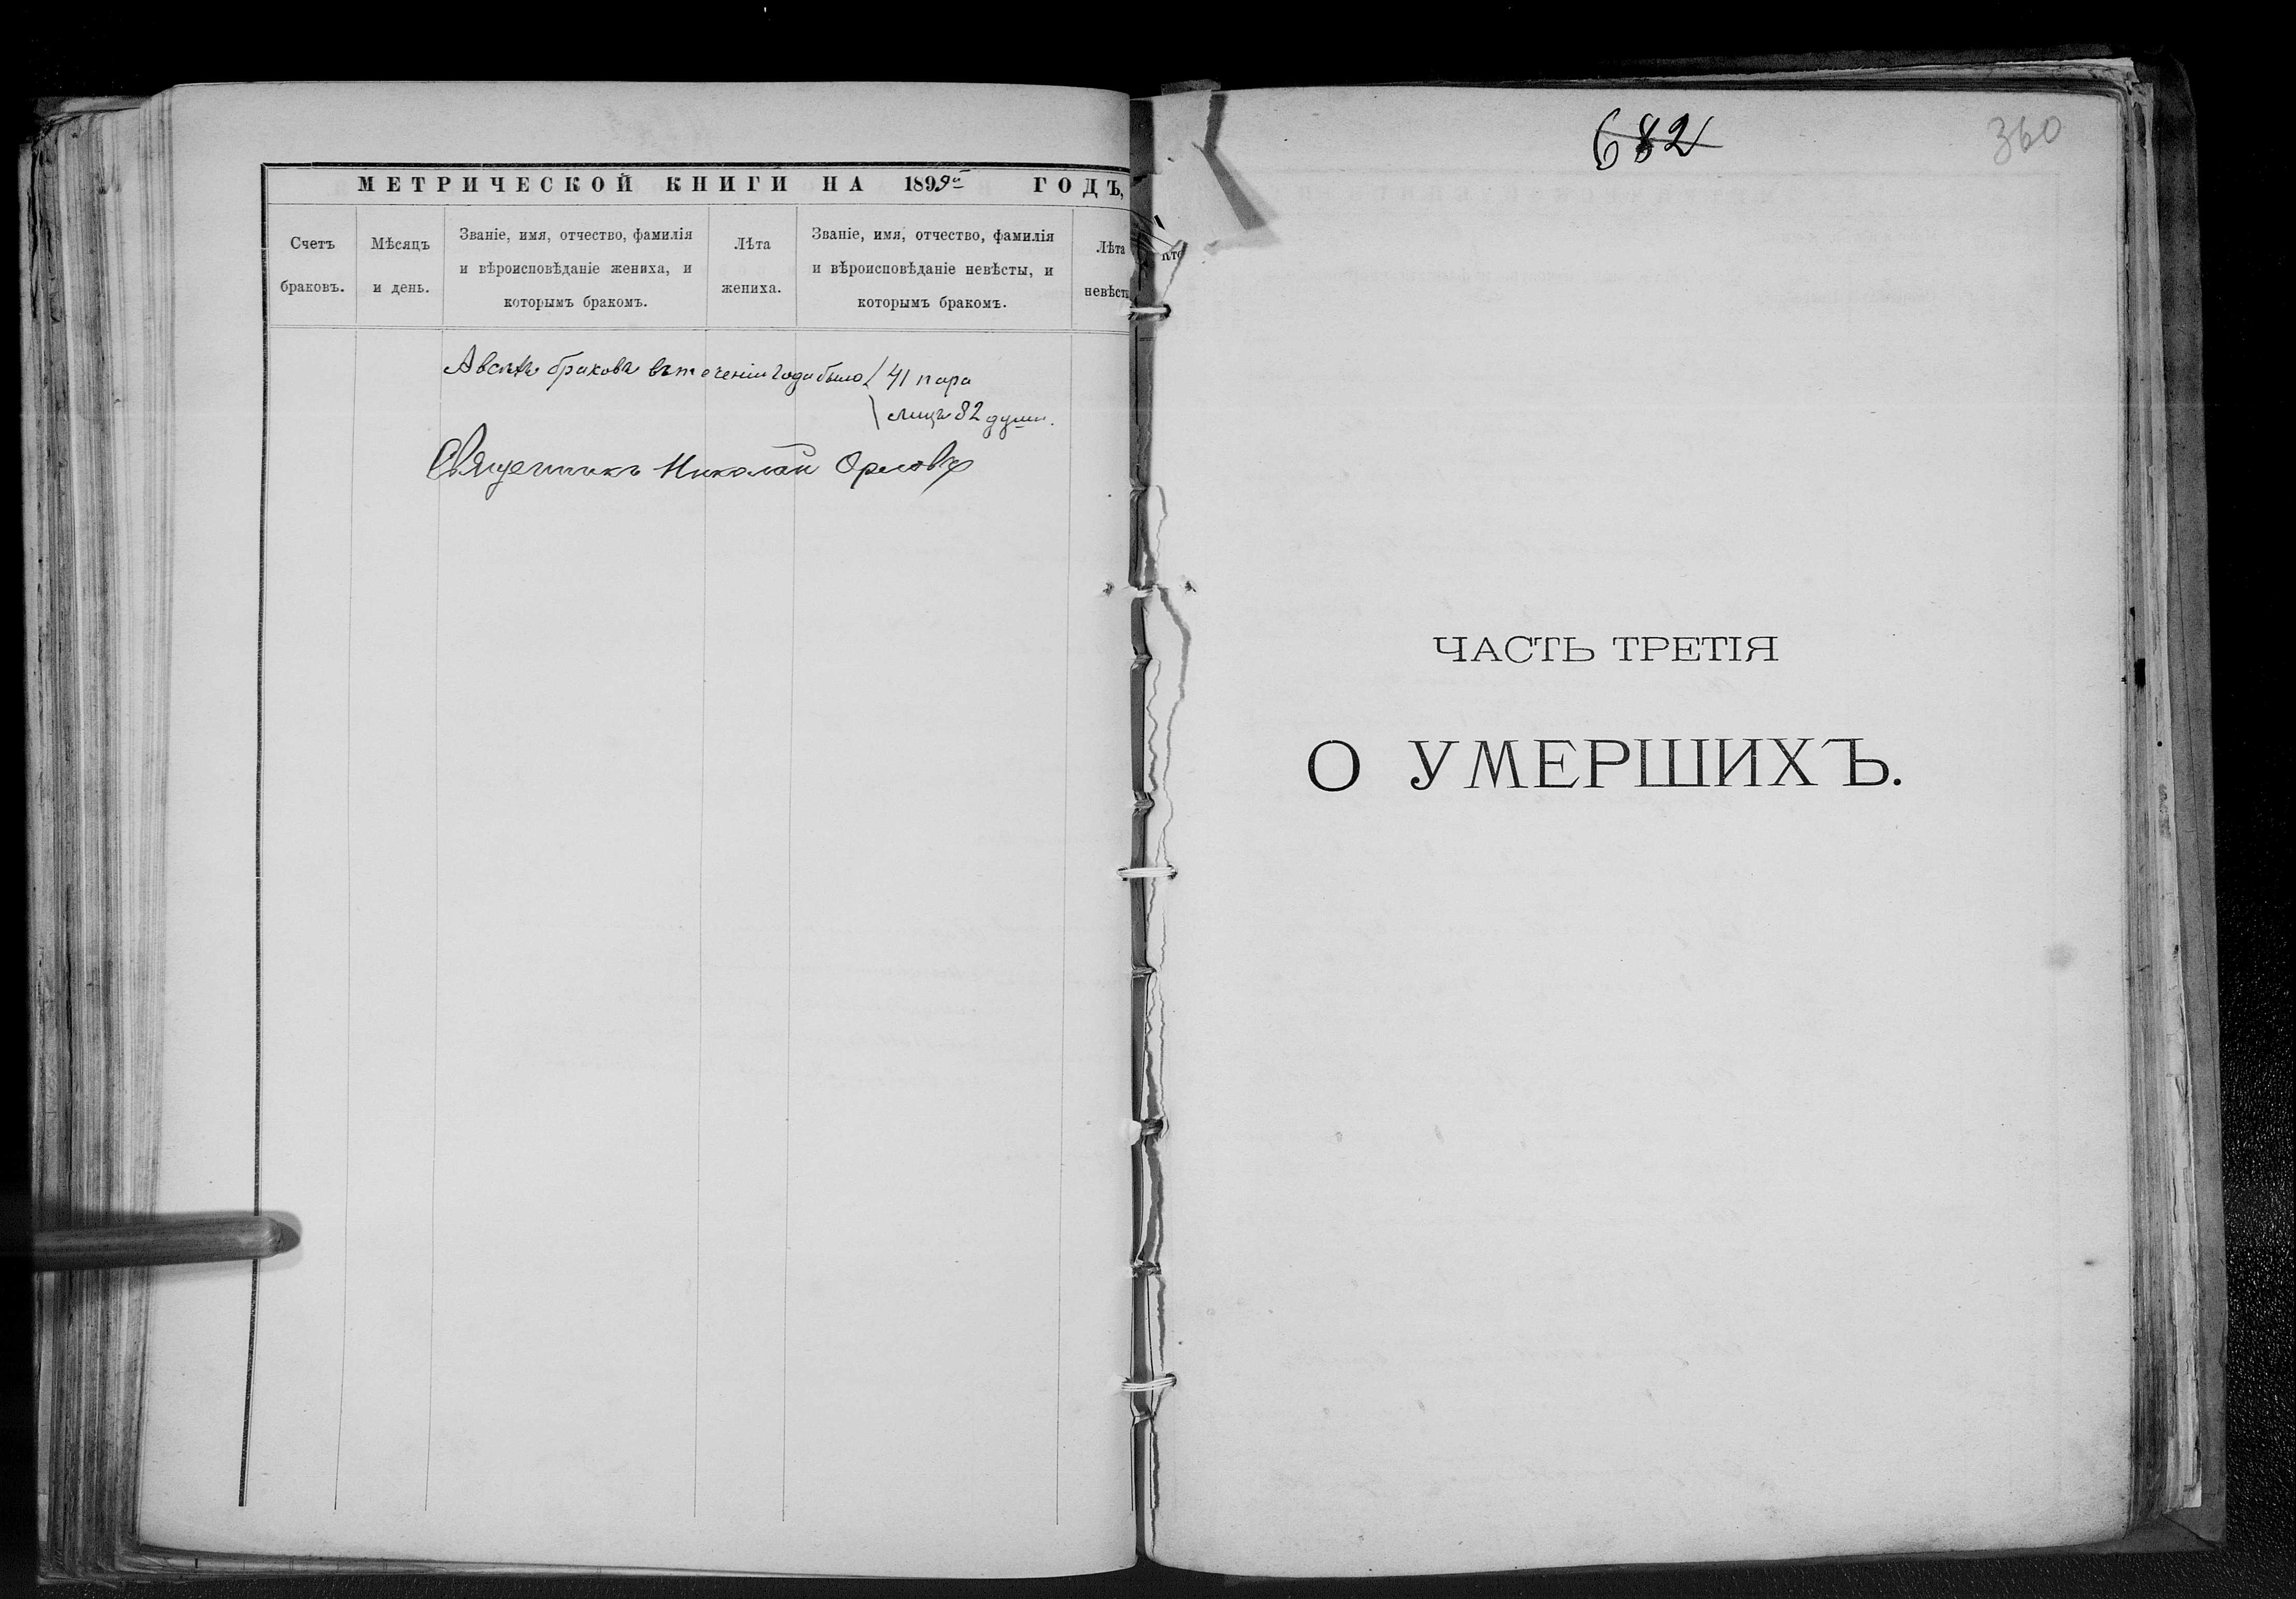 МЕТРИЧЕСКОЙ КНИГИ НА 1899й ГОДЪ,
Счетъ браковъ.
Мѣсяцъ и день.
Званіе, имя, отчество, фамилія
и вѣроисповѣданіе жениха, и
которымъ бракомъ.
Лѣта
жениха.
Званіе, имя, отчество, фамилія
и вѣроисповѣданіе невѣсты, и
которымъ бракомъ.
Лѣта
А всѣхъ браковъ въ теченіи года было 41 пара
лицъ 82 души.
Священникъ Николай Орловъ
682
360
ЧАСТЬ ТРЕТІЯ
О УМЕРШИХЪ.